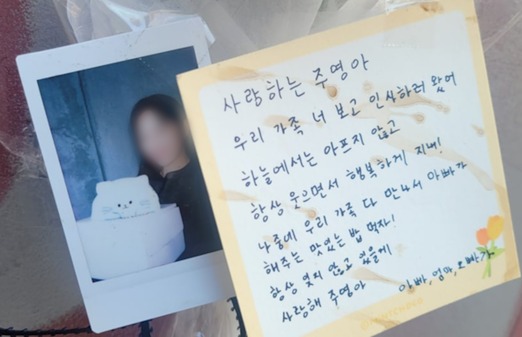 사랑하는 주영아
우리 가족 너 보고 인사하러 왔어
하늘에서는 아프지 않고
항상 웃으면서 행복하게 지내!
나중에 우리 가족 다 만나서 아빠가
해주는 맛있는 밥 먹자!
항상 잊지 않고 있을게
사랑해 주영아
아빠, 엄마, 오빠가